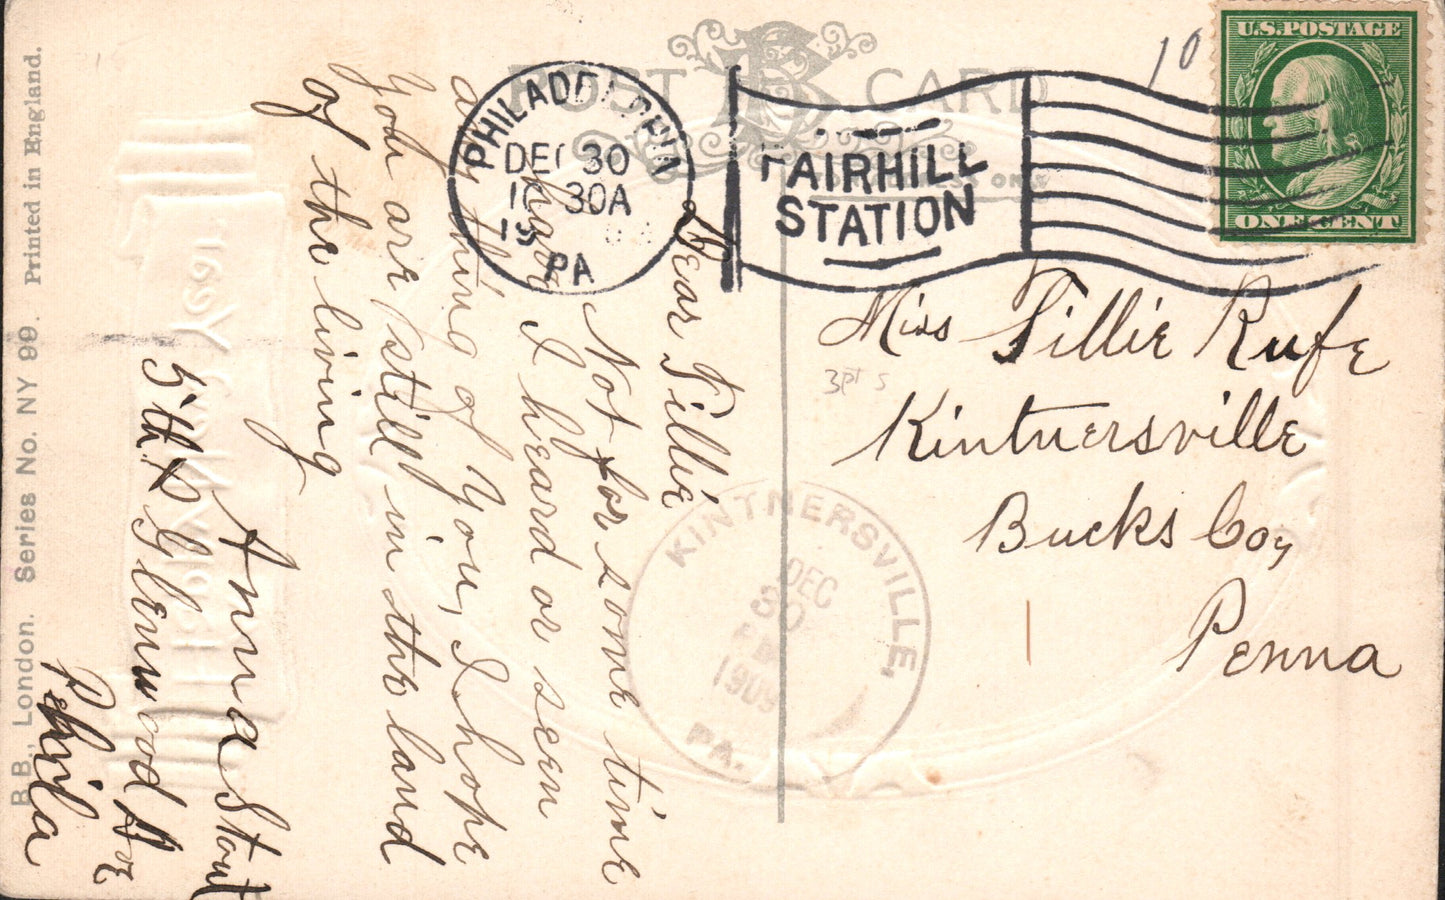 POST CARD
PHILADELPHIA
DEC 30
10 30A
19
PA
FAIRHILL
STATION
U.S. POSTAGE
ONE CENT
10
Miss Tillie Rufe
Kintnersville
Bucks Coy
Penna
3pt s
KINTNERSVILLE,
DEC
30
1909
PA.
Dear Tillie
Not for some time
have I heard or seen
any thing of You, I hope
You are still in the land
of the living
Anna Stout
5th & Glenwood Ave
Phila
B.B., London. Series No. NY 99. Printed in England.